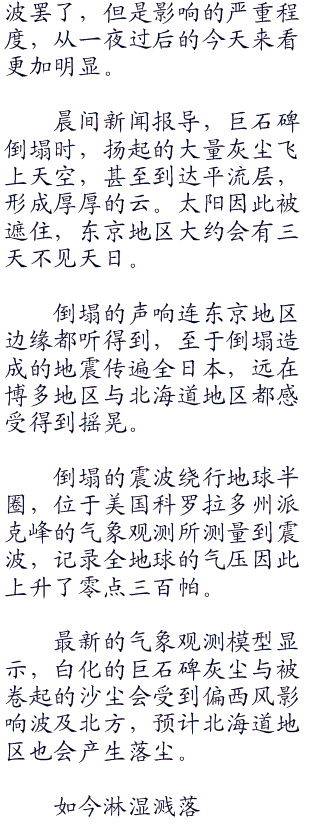 波罢了，但是影响的严重程
度，从一夜过后的今天来看
更加明显。
晨间新闻报导，巨石碑
倒塌时，扬起的大量灰尘飞
上天空，甚至到达平流层，
形成厚厚的云。太阳因此被
遮住，东京地区大约会有三
天不见天日。
倒塌的声响连东京地区
边缘都听得到，至于倒塌造
成的地震传遍全日本，远在
博多地区与北海道地区都感
受得到摇晃。
倒塌的震波绕行地球半
圈，位于美国科罗拉多州派
克峰的气象观测所测量到震
波，记录全地球的气压因此
上升了零点三百帕。
最新的气象观测模型显
示，白化的巨石碑灰尘与被
卷起的沙尘会受到偏西风影
响波及北方，预计北海道地
区也会产生落尘。
如今淋湿溅落